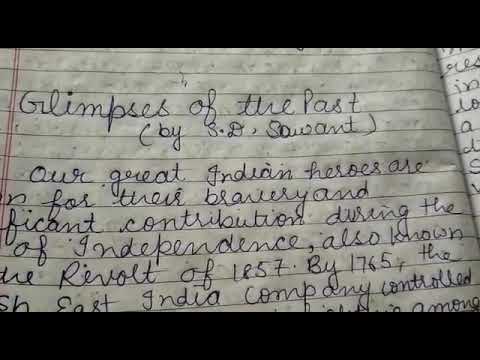 Glimpses of the Past
(by S.D. Sawant)
Our great Indian heroes are
n for their bravery and
ficant contribution during the
of Independence, also known
he Revolt of 1857. By 1765, the
sh East India Company controlled
among
res
in
a